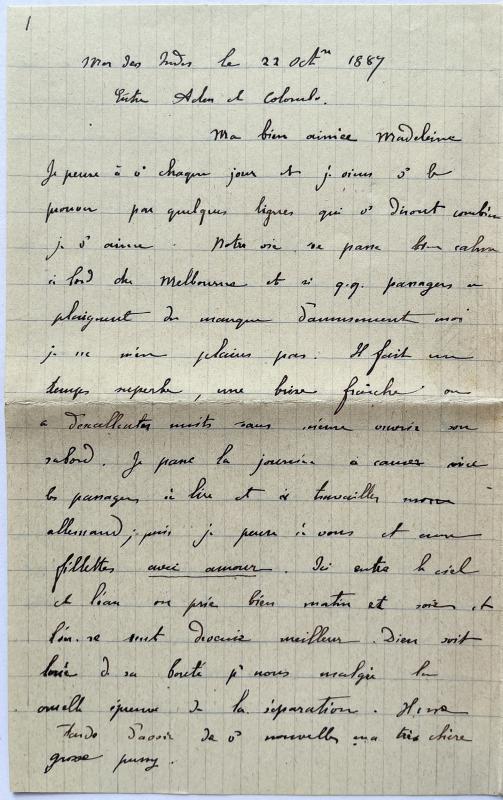 1
Mer des Indes le 22 Octre 1887
Entre Aden et Colombo.
Ma bien aimée Madeleine
Je pense à vs chaque jour et je viens vs le
prouver par quelques lignes qui vs diront combien
je vs aime. Notre vie se passe bien calme
à bord du Melbourne et si q.q. passagers se
plaignent du manque d'amusement moi
je ne m'en plains pas. Il fait un
temps superbe, une brise fraîche on
a d'excellentes nuits sans même ouvrir son
sabord. Je passe la journée à causer avec
les passagers à lire et à travailler mon
allemand; puis je pense à vous et aux
fillettes avec amour. Ici entre le ciel
et l'eau on prie bien matin et soir et
l'on se sent devenir meilleur. Dieu soit
loué de sa bonté pr nous malgré la
cruelle épreuve de la séparation. Il me
tarde d'avoir de vs nouvelles ma très chère
grosse pussy.